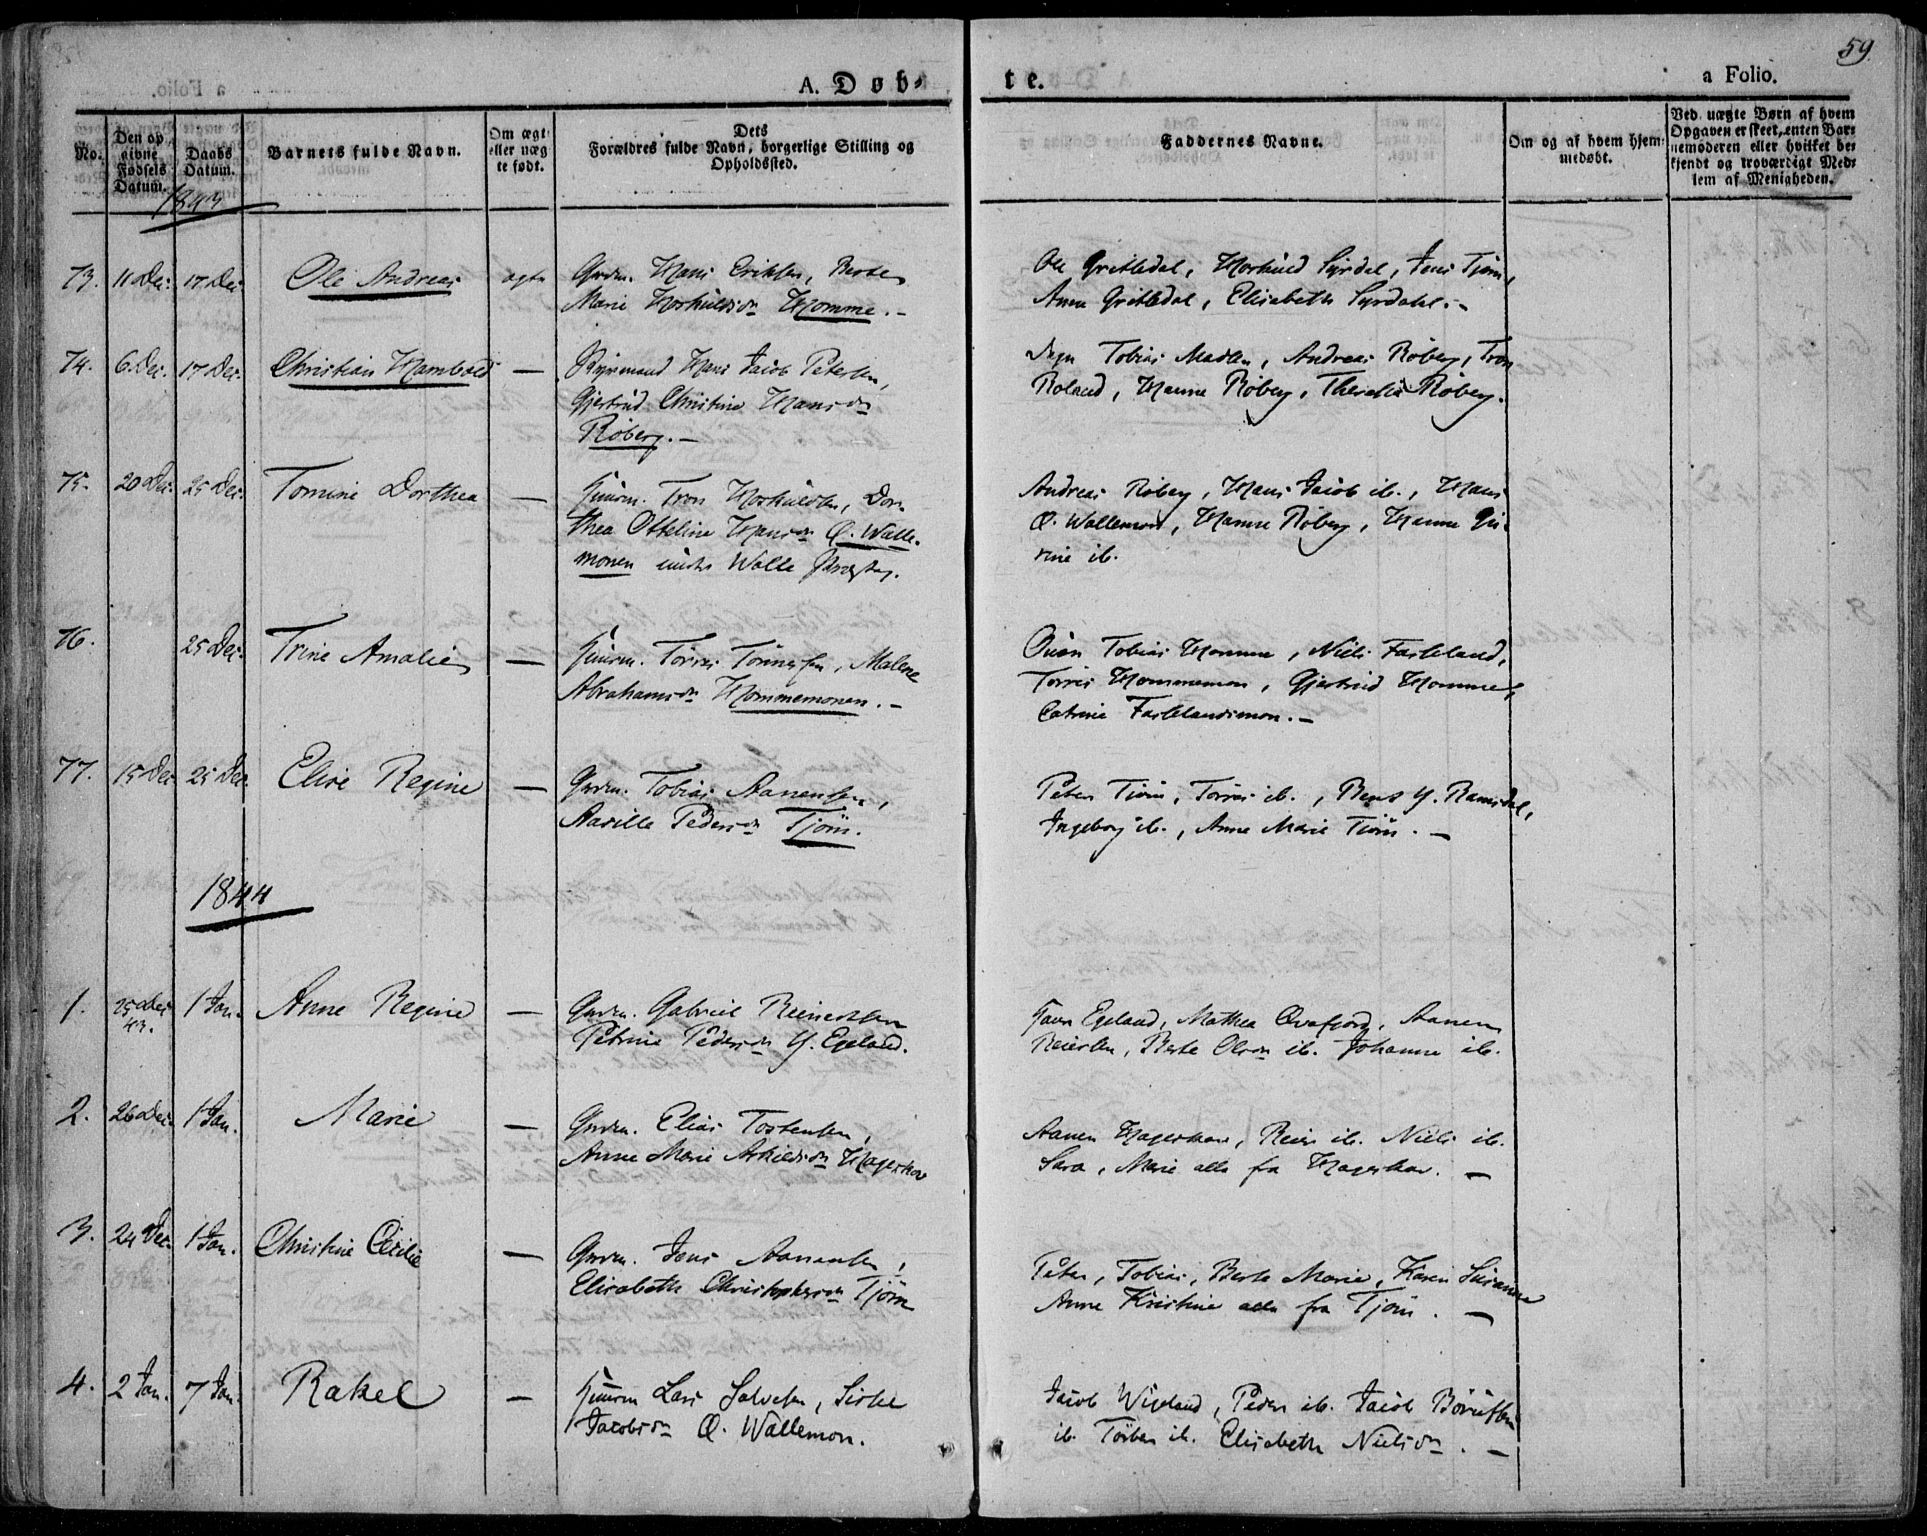 59
A. Døb-
te.
a Folio.
No.
Den op
givne
Fødsels
Datum.
Daabs
Datum.
Barnets fulde Navn.
Om ægt
eller uæg
te født.
Dets
Forældres fulde Navn, borgerlige Stilling og
Opholdssted.
Faddernes Navne.
Om og af hvem hjem-
medøbt.
Ved uægte Børn af hvem
Opgaven er skeet, enten Bar-
nemoderen eller hvilket be-
kjendt og troværdigt Med-
lem af Menigheden.
1843
73. 11 Dec. 17 Dec. Ole Andreas ægte Grdm. Hans Eriksen, Berte
Marie Horskuldsdr Homme. -
Ole Gritledal, Horskuld Syrdal, Jens Tjøm,
Anna Gritledal, Elisabeth Syrdahl. -
74. 6 Dec. 17 Dec. Christian Hambold — Hans Jacob Petersen,
Gjertrud Christine Hansdr
Røberg. -
Tobias Madsen, Andreas Røberg, Tron
Roland, Hanne Røberg, Røberg.
75. 20 Dec. 25 Dec. Tomine Dorthea — Huusm. Tron Horskuldsen, Dor-
thea Otteline Hansdr Ø. Walle-
monen under Walle Præsteg.
Andreas Røberg, Hans Jacob ib., Hans
Ø. Wallemon, Hanne Røberg, Hanne
rine ib.
76. 25 Dec. Trine Amalie — Huusm. Torres Tønnesen, Malene
Abrahamsdr Hommemonen. -
Tobias Homme, Niels Faseland,
Torres Hommemon, Gjertrud Homme,
Catrine Faselandsmon. -
77. 15 Dec 25 Dec. Elise Regine — Grdm. Tobias Aanensen,
Aasille Pedersdr Tjøm.
Peter Tjøm, Torres ib., Y. Ramsdal,
Ingeborg ib., Anne Marie Tjøm. -
1844
1. 25 Dec 43. 1 Jan. Anne Regine — Grdm. Gabriel Reinertsen
Petrine Pedersdr Y. Egeland.
Egeland, Mathea Qvafjord, Aanen
Reiersen, Berte Olsdr ib. Johanne ib.
2. 26 Dec. 1 Jan. Marie — Grdm. Elias Tostensen,
Anne Marie Askildsdr Hageskar
Aanen Hageskar, Reier ib. Niels ib.
Sara, Marie alle fra Hageskar. -
3. 24 Dec. 1 Jan. Christine Cecilie — Grdm. Jens Aanensen,
Elisabeth Christophersdr Tjøm
Peter, Tobias, Berte Marie, Karen Susanne
Anne Kristine alle fra Tjøm. -
4. 2 Jan. 7 Jan. Rakel — Huusm Lars Salvesen, Siske
Jacobsdr Ø. Wallemon.
Jacob Wigeland, Peder ib. Jacob Børresen
ib. Torber ib. Elisabeth Nielsdr. -